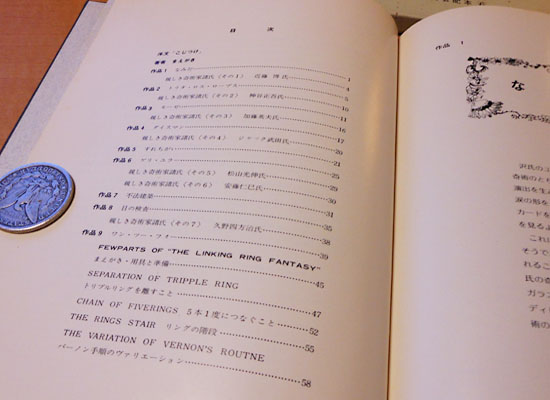 目 次
序文「こじつけ」
著者 まえがき
作品1
親しき奇術家諸氏(その1) 近藤 博氏 1
作品2 トリオ・ロス・ロープス 4
親しき奇術家諸氏(その2) 神谷正西氏 5
作品3 10
親しき奇術家諸氏(その3) 加藤英夫氏 11
作品4 ダイスマン 16
親しき奇術家諸氏(その4) ジャック武田氏 17
作品5 すれちがい 20
作品6 21
親しき奇術家諸氏(その5) 松山光伸氏 25
親しき奇術家諸氏(その6) 安藤仁巳氏 29
作品7 不法建築 30
作品8 目の検査 35
親しき奇術家諸氏(その7) 久野四方治氏 38
作品9 ワン・ツー・フォー 39
FEWPARTS OF "THE LINKING RING FANTASY"
まえがき・用具と準備 45
SEPARATION OF TRIPPLE RING
トリプルリングを離すこと 47
CHAIN OF FIVERINGS 5本1度につなぐこと 52
THE RINGS STAIR リングの階段 55
THE VARIATION OF VERNON'S ROUTNE
バーノン手順のヴァリエーション 58
作品 1
な
沢氏の
奇術のと
演出を生
涙の形を
カードを
を見るよ
これに
そうで
れるこ
氏の奇
ガラン
ディ
術の